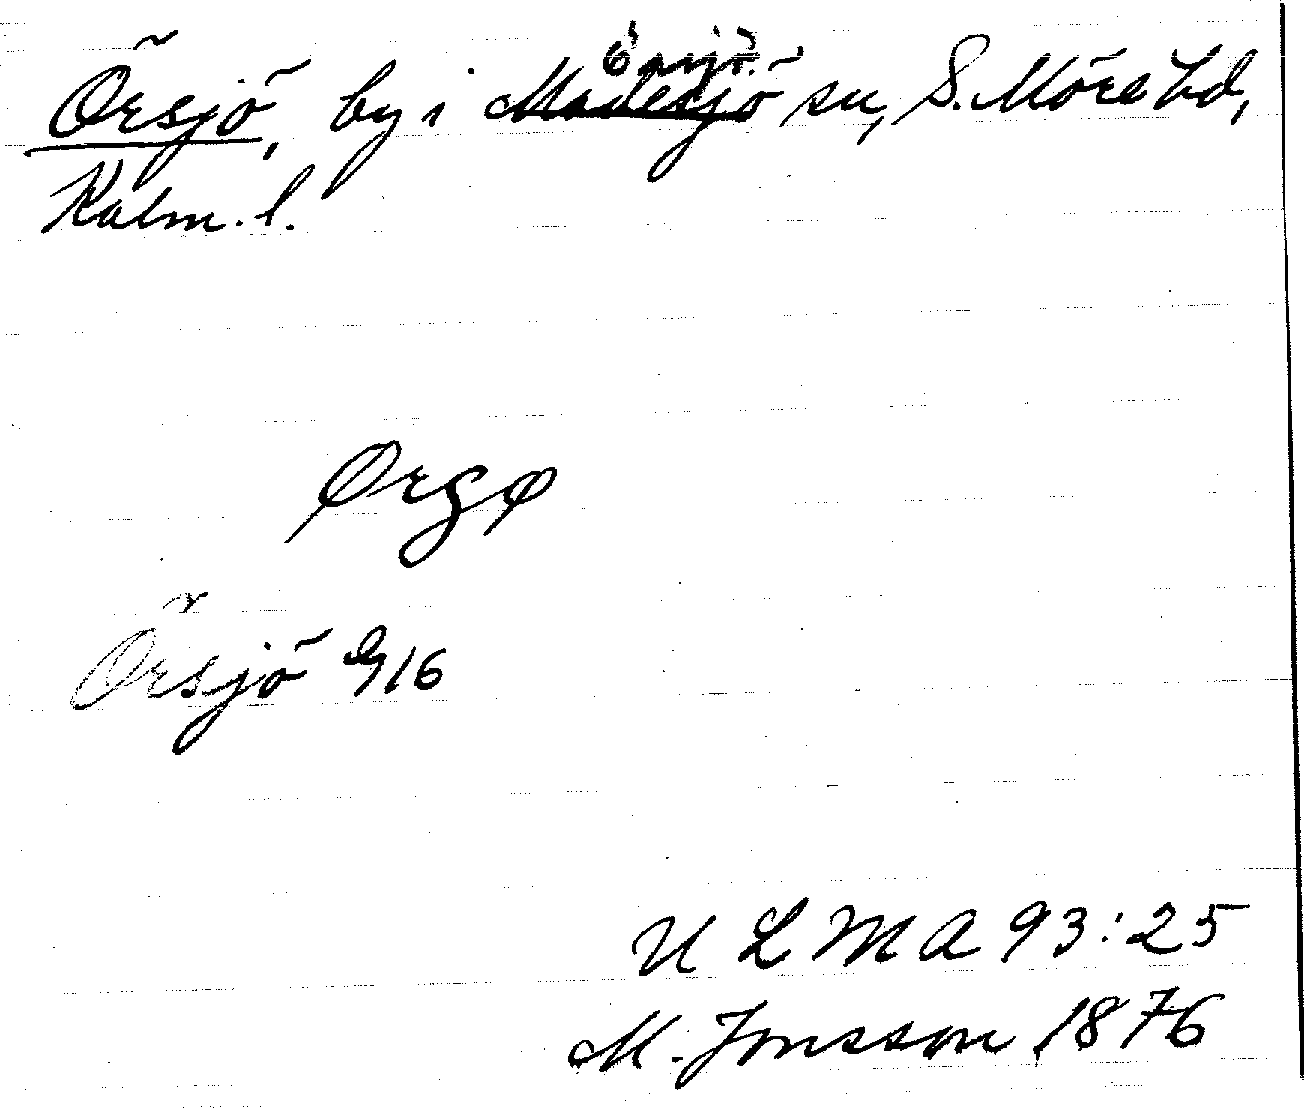 Örsjö, by i Madesjö sn, S. Möre hd,
Örsjö
Kalm. l.
Ørgø
Örsjö 916
ULMA 93:25
M. Jonsson 1876